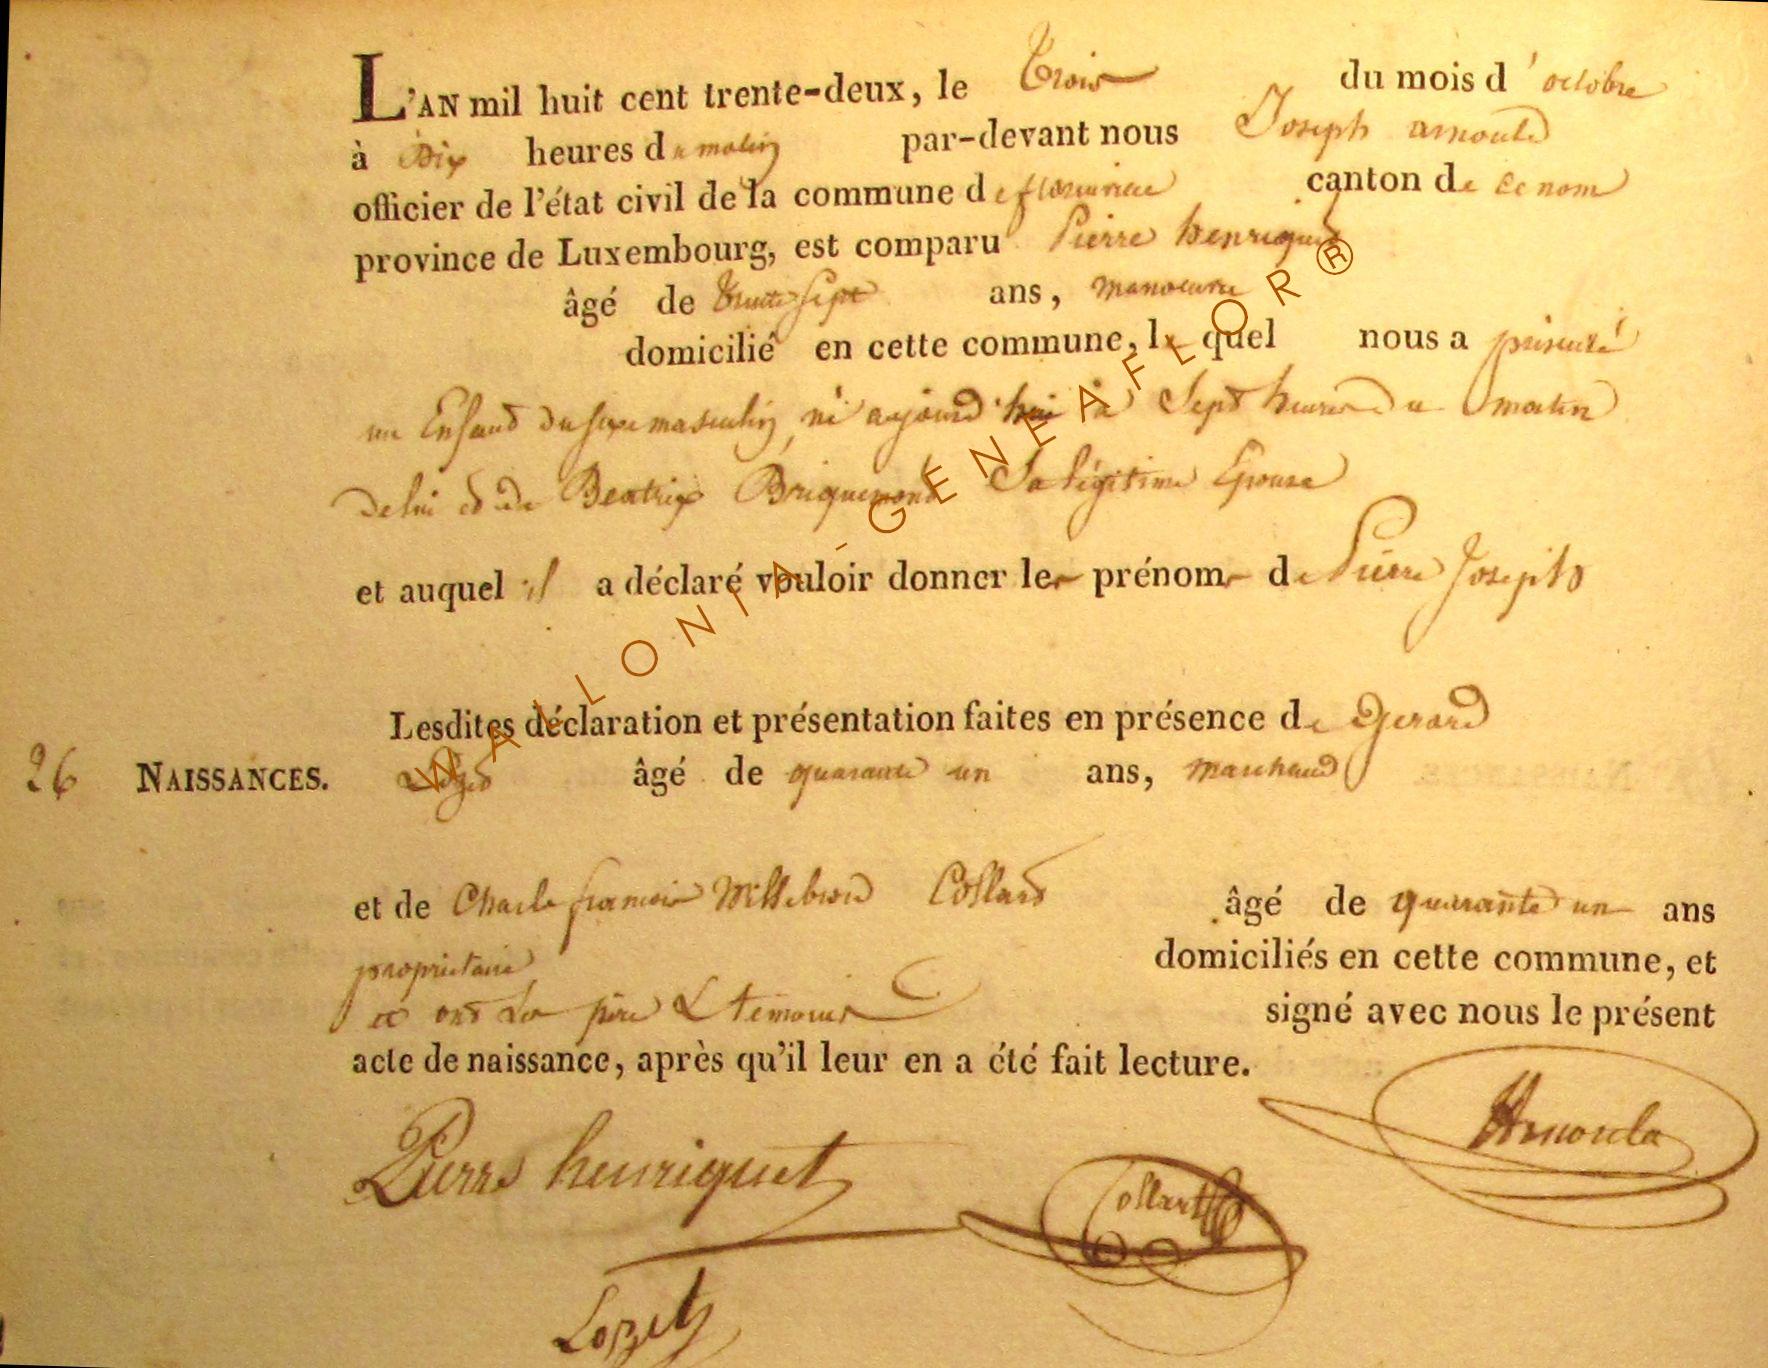 L'AN mil huit cent trente-deux, le Trois du mois d'octobre
à Dix heures du matin par-devant nous Joseph arnould
officier de l'état civil de la commune de florenville canton de ce nom
province de Luxembourg, est comparu Pierre henriquet
âgé de trente sept ans, manoeuvre
domicilié en cette commune, le quel nous a présenté
un Enfant du sexe masculin, né aujourd'hui à Sept heures du matin
de lui et de Beatrix Briquemont Sa légitime Epouse
et auquel il a déclaré vouloir donner les prénoms de Pierre Joseph
Lesdites déclaration et présentation faites en présence de Gerard
26 NAISSANCES. âgé de quarante un ans, marchand
et de Charle francois Willebrord Collard âgé de quarante un ans
proprietaire domiciliés en cette commune, et
et ont les père & temoins signé avec nous le présent
acte de naissance, après qu'il leur en a été fait lecture.
Pierre henriquet Collart Arnould
Lozet
WALLONIA-GENEAFLOR®